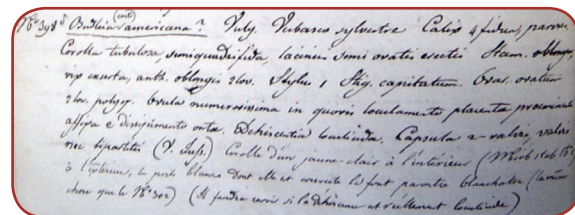 No 398 Budleia americana? Vulg. Verbasco sylvestre Calix 4 fidus, parvus.
Corolla tubulosa, semiquadrifida, laciniis semi ovatis erectis Stam. oblonga,
vix exserta, anth. oblongis 2 lov. Stylus 1 Stig. capitatum. Ovar. ovatum
2 lov. polysp. Ovula numerosissima in quovis loculamento placenta
affixa e dissepimento orta. Dehiscentia loculicida. Capsula 2-valvis, valvis
nec bipartitis (V. Juss.) Corolle d'un jaune clair à l'intérieur
à l'extérieur, le poils blancs dont elle est couverte la font paroitre blanchatre (la même
chose que le No 302) (Il faudra revoir si la dehiscence est réellement loculicide)